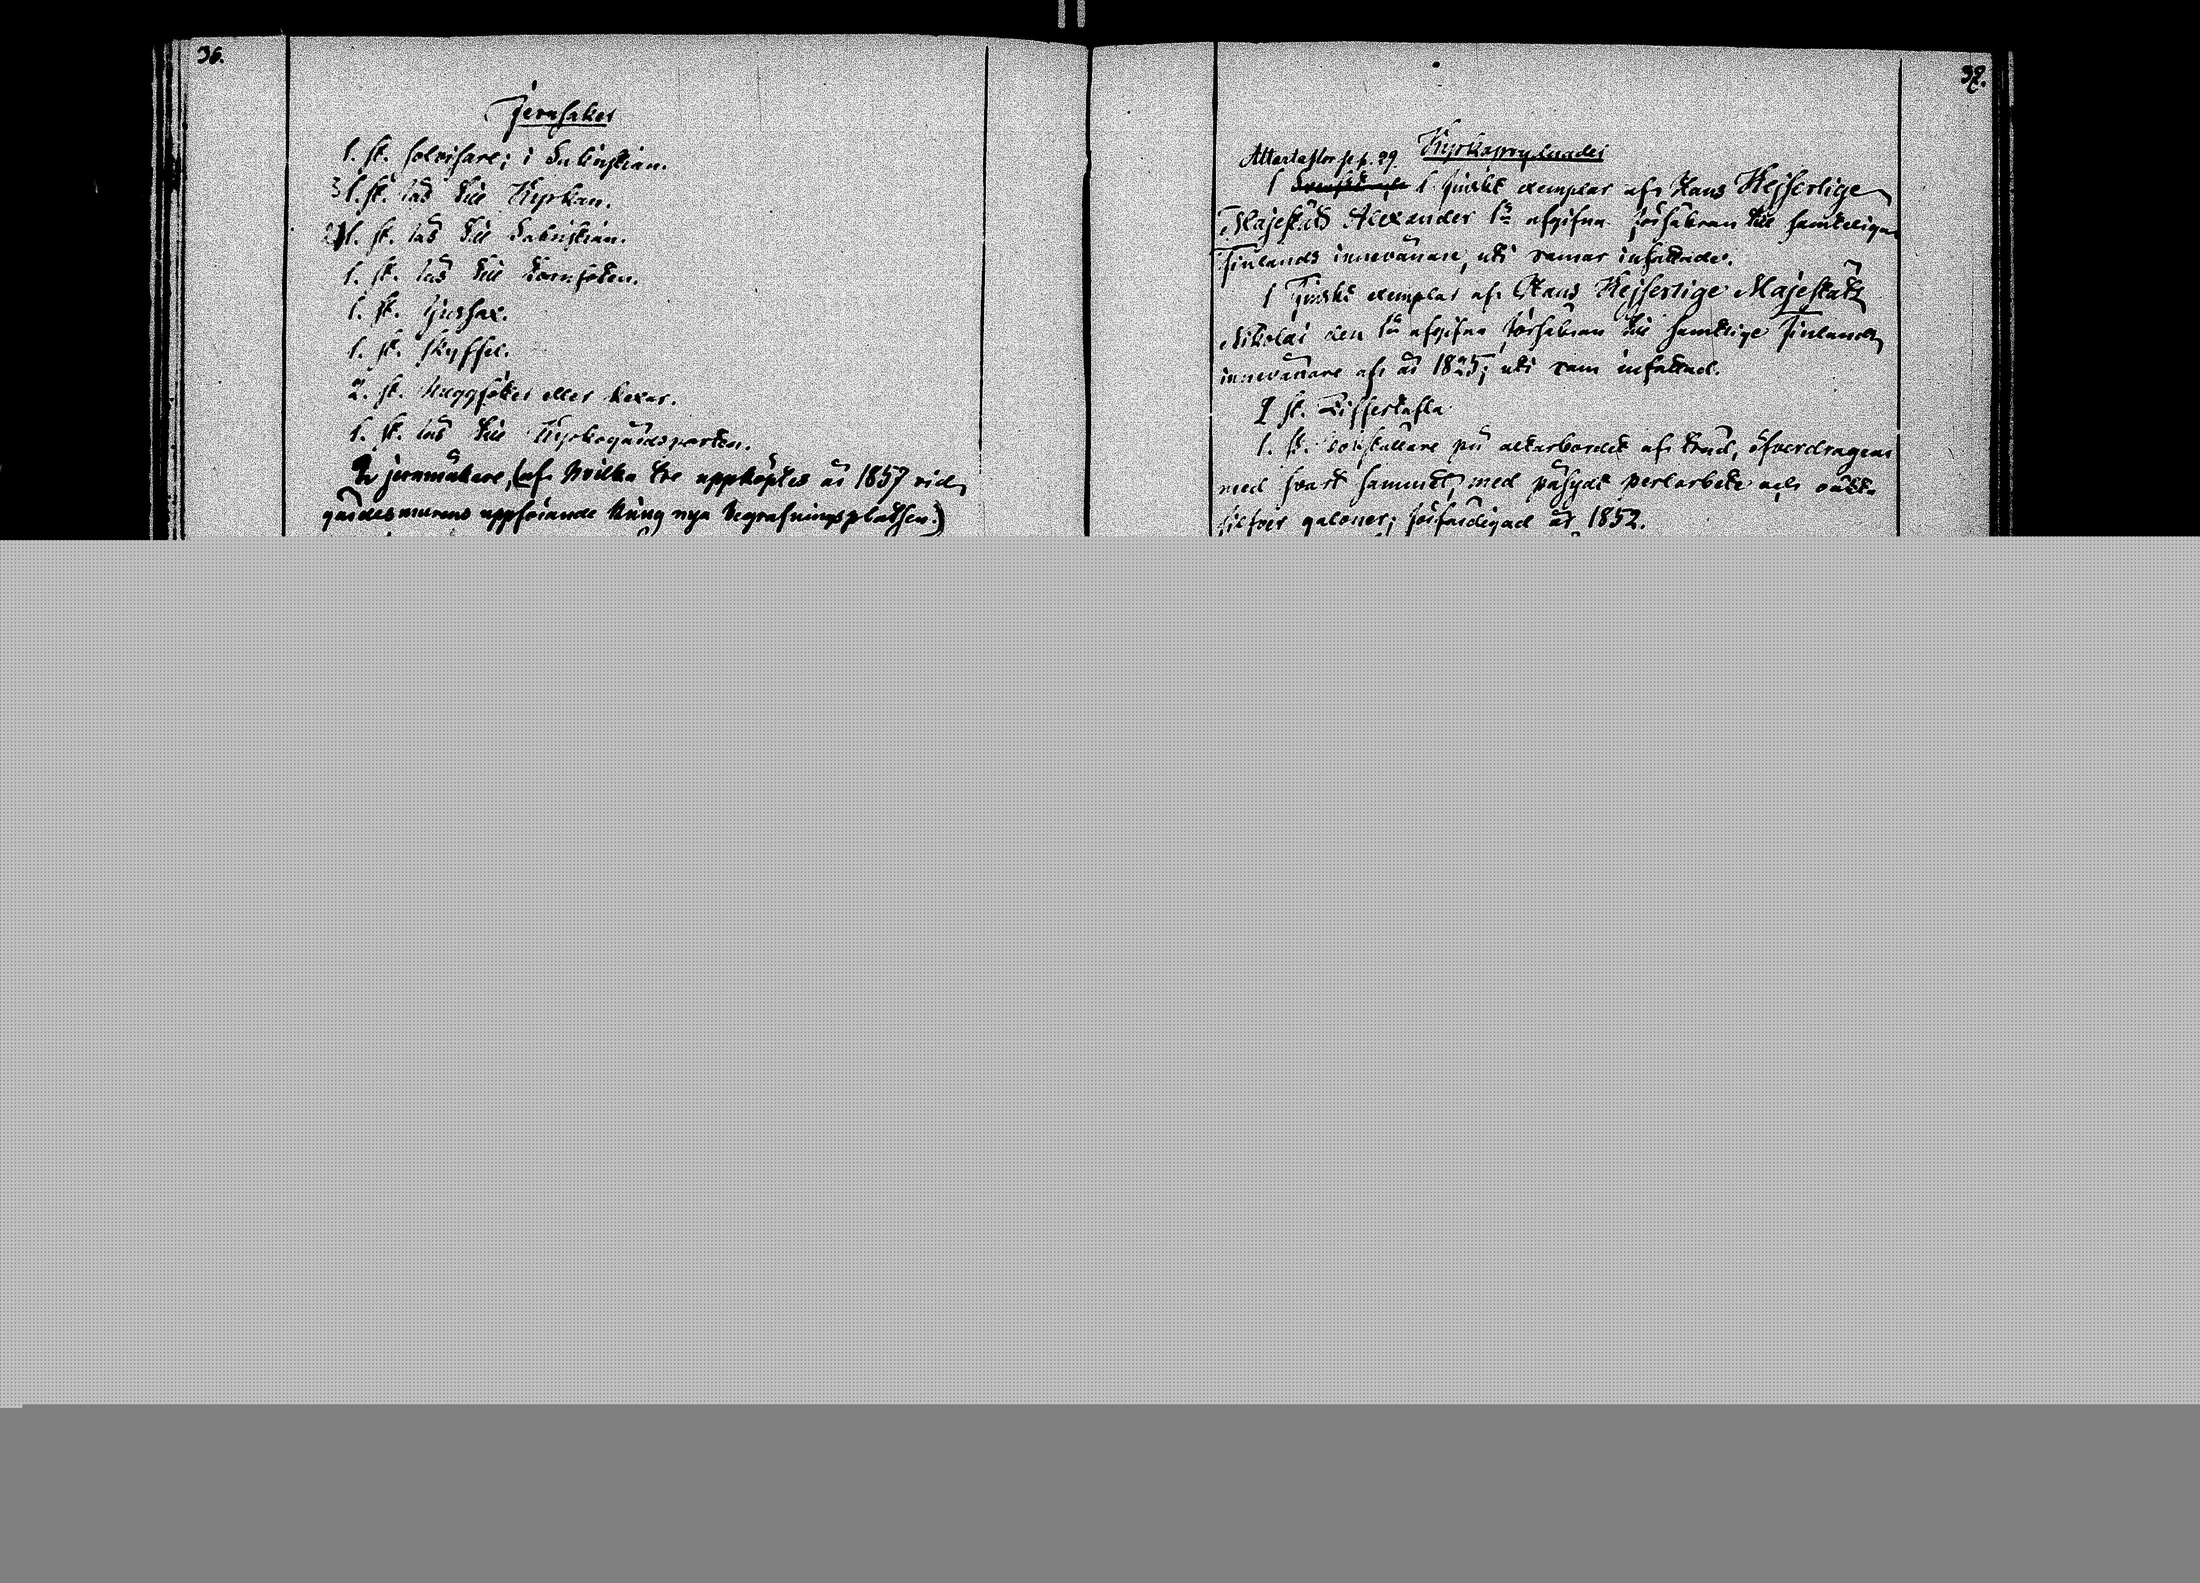 36.
Jernsaker
1. st. solvisare; i Sakristian.
3 1. st. lås till Kyrkan.
1. st. lås till Sakristian.
1. st. lås till tornfoten.
1. st. ljussax.
1. st. skyffel.
2. st. huggjern eller hexar.
1. st. lås till Kyrkogårdsporten.
jernmälare, (af hvilka tre uppköptes år 1857 vid
gårdesmurens uppförande kring nya begrafningsplatsen.)
37.
Altartaflor se p. 29. Kyrkoprydnader
1 1 finskt exemplar af Hans Kejserlige
Majestäts Alexander 1s afgifna försäkran till samtelige
Finlands innevånare, uti ramar infattade.
1 Finskt exemplar af Hans Kejserlige Majestäts
Nikolai den 1s afgifna försäkran till samtlige Finlands
innevånare af år 1825; uti ram infattad.
st. Ziffertafla
1. st. på altarbordet af träd, öfverdragen
med svart sammet, med påsydt perlarbete och oäkta
silfver galoner; förfärdigad år 1852.